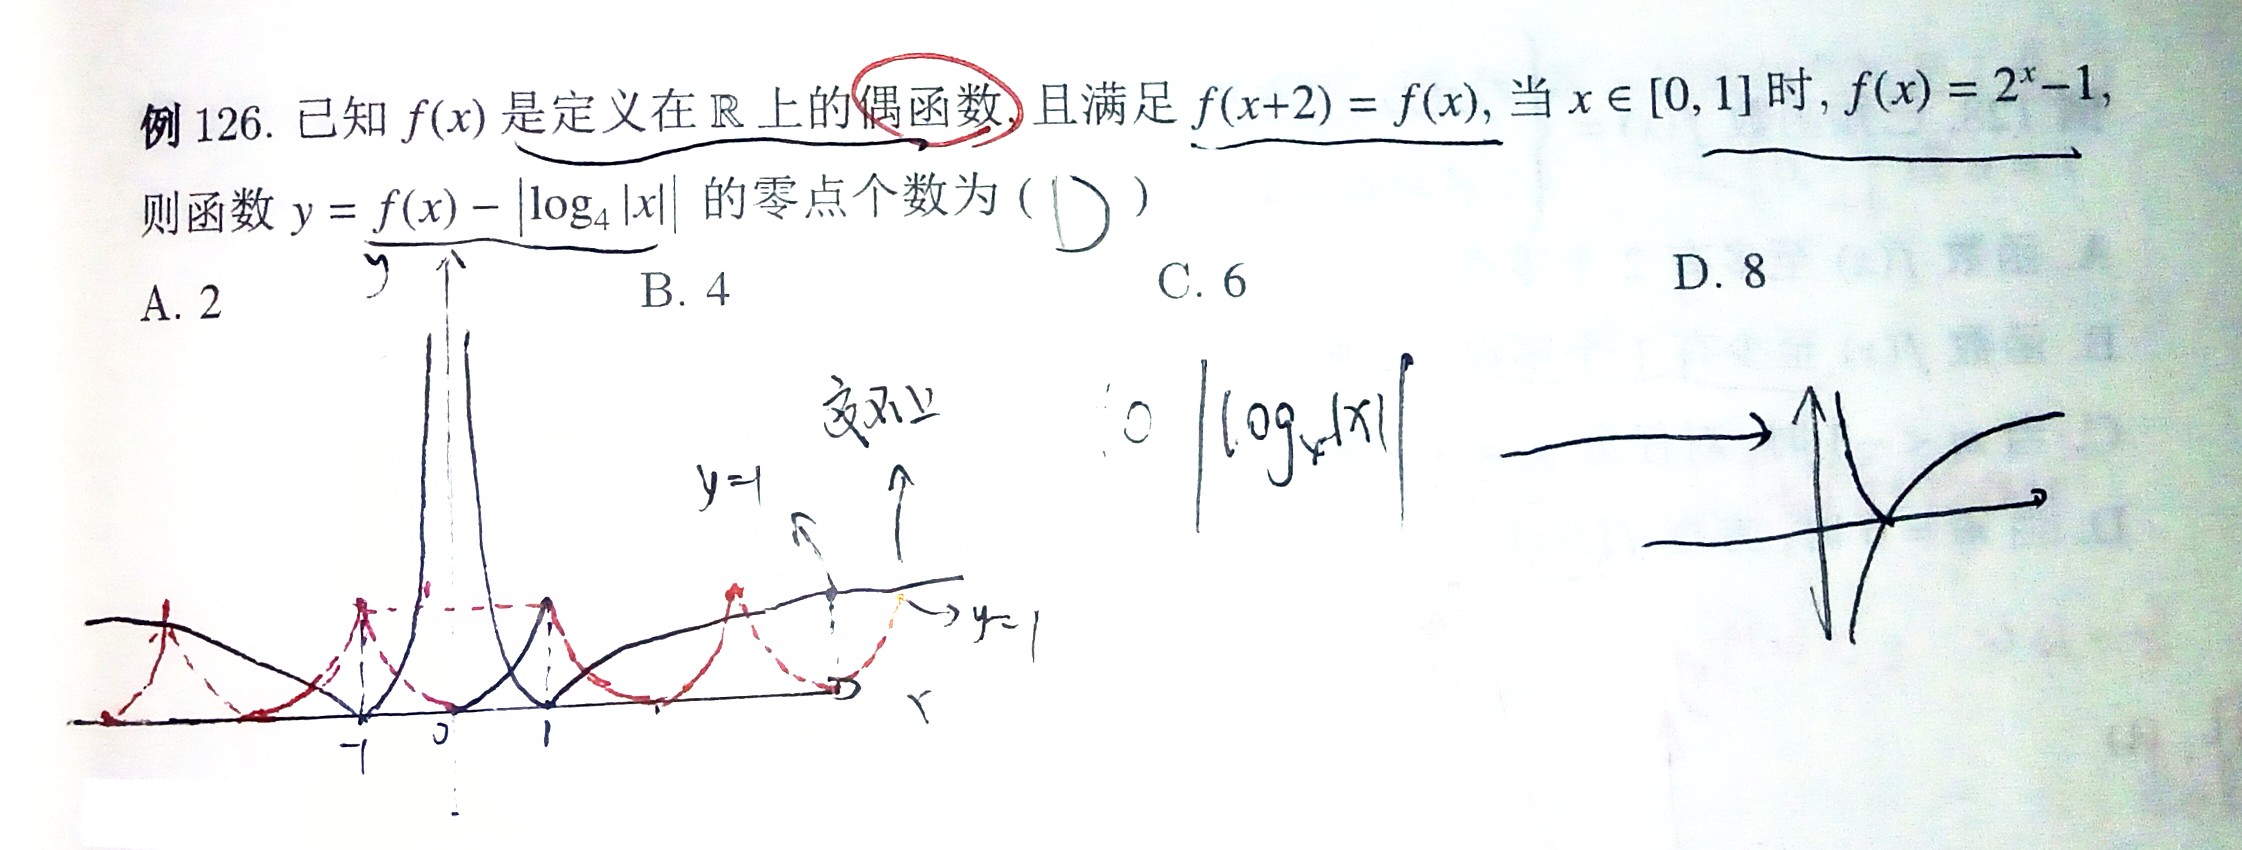 例 126. 已知 f(x) 是定义在 ℝ 上的偶函数, 且满足 f(x+2) = f(x), 当 x ∈ [0, 1] 时, f(x) = 2^x−1,
则函数 y = f(x) − |log₄ |x|| 的零点个数为 ( D )
A. 2 B. 4 C. 6 D. 8
y
|log₄|x||
y=1
y=1
x
-1 0 1